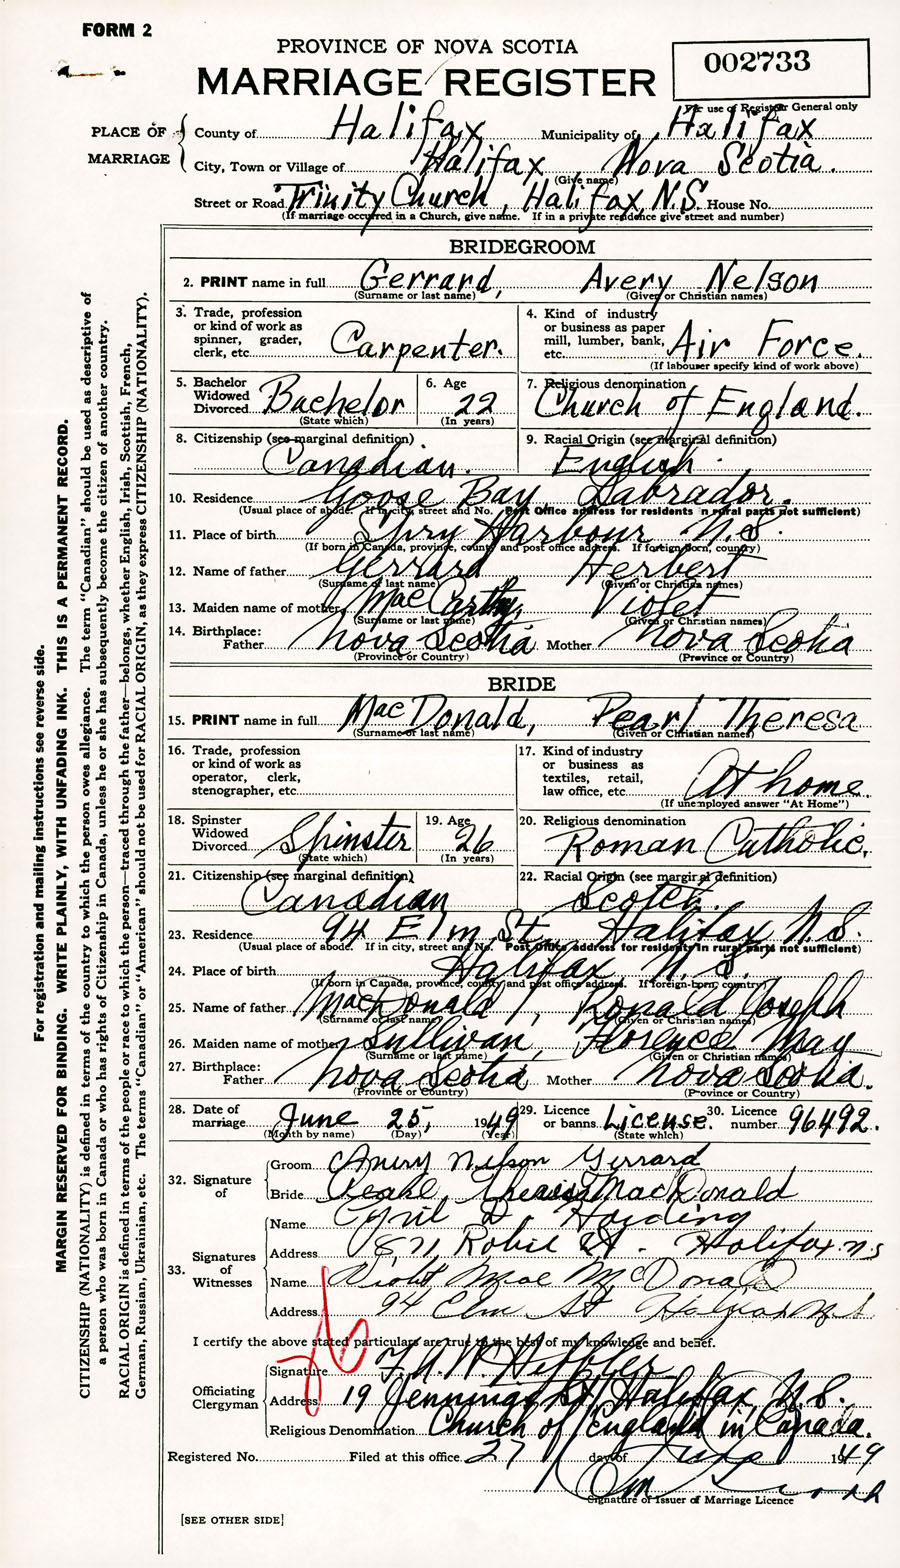 FORM 2
PROVINCE OF NOVA SCOTIA
MARRIAGE REGISTER
002733
For use of Registrar General only
PLACE OF MARRIAGE
County of Halifax Municipality of Halifax
City, Town or Village of Halifax, Nova Scotia.
(Give name)
Street or Road Trinity Church, Halifax, N.S. House No.
(If marriage occurred in a Church, give name. If in a private residence give street and number)
BRIDEGROOM
2. PRINT name in full Gerrard, Avery Nelson
(Surname or last name) (Given or Christian names)
3. Trade, profession or kind of work as spinner, grader, clerk, etc. Carpenter.
4. Kind of industry or business as paper mill, lumber, bank, etc. Air Force.
(If labourer specify kind of work above)
5. Bachelor Widowed Divorced Bachelor (State which)
6. Age 22 (In years)
7. Religious denomination Church of England.
8. Citizenship (see marginal definition) Canadian.
9. Racial Origin (see marginal definition) English.
10. Residence Goose Bay Labrador.
(Usual place of abode. If in city, street and No. Post Office address for residents in rural parts not sufficient)
11. Place of birth Spry Harbour N.S.
(If born in Canada, province, county and post office address. If foreign born, country)
12. Name of father Gerrard Herbert
(Surname or last name) (Given or Christian names)
13. Maiden name of mother MacCarthy, Violet
(Surname or last name) (Given or Christian names)
14. Birthplace: Father Nova Scotia Mother Nova Scotia
(Province or Country) (Province or Country)
BRIDE
15. PRINT name in full MacDonald, Pearl Theresa
(Surname or last name) (Given or Christian names)
16. Trade, profession or kind of work as operator, clerk, stenographer, etc.
17. Kind of industry or business as textiles, retail, law office, etc. At home.
(If unemployed answer "At Home")
18. Spinster Widowed Divorced Spinster (State which)
19. Age 26 (In years)
20. Religious denomination Roman Catholic.
21. Citizenship (see marginal definition) Canadian
22. Racial Origin (see marginal definition) Scotch.
23. Residence 94 Elm St, Halifax N.S.
(Usual place of abode. If in city, street and No. Post Office address for residents in rural parts not sufficient)
24. Place of birth Halifax, N.S.
(If born in Canada, province, county and post office address. If foreign-born, country)
25. Name of father MacDonald, Ronald Joseph
(Surname or last name) (Given or Christian names)
26. Maiden name of mother Sullivan, Florence May
(Surname or last name) (Given or Christian names)
27. Birthplace: Father Nova Scotia Mother Nova Scotia.
(Province or Country) (Province or Country)
28. Date of marriage June 25, 1949
(Month by name) (Day) (Year)
29. Licence or banns License. (State which)
30. Licence number 96492.
32. Signature of
Groom Avery Nelson Gerrard
Bride Pearl Theresa MacDonald
33. Signatures of Witnesses
Name Cyril D. Harding
Address Robie St. Halifax N.S
Name Violet Mae McDonald
Address 94 Elm St Halifax N.S
I certify the above stated particulars are true to the best of my knowledge and belief.
Officiating Clergyman
Signature
Address 19 Jennings St, Halifax, N.S.
Religious Denomination Church of England in Canada.
Registered No. Filed at this office 27 day of June 1949
Signature of Issuer of Marriage Licence
[SEE OTHER SIDE]
For registration and mailing instructions see reverse side.
MARGIN RESERVED FOR BINDING. WRITE PLAINLY, WITH UNFADING INK. THIS IS A PERMANENT RECORD.
CITIZENSHIP (NATIONALITY) is defined in terms of the country to which the person owes allegiance. The term "Canadian" should be used as descriptive of
a person who was born in Canada or who has rights of Citizenship in Canada, unless he or she has subsequently become the citizen of another country.
RACIAL ORIGIN is defined in terms of the people or race to which the person—traced through the father—belongs, whether English, Irish, Scottish, French,
German, Russian, Ukrainian, etc. The terms "Canadian" or "American" should not be used for RACIAL ORIGIN, as they express CITIZENSHIP (NATIONALITY).